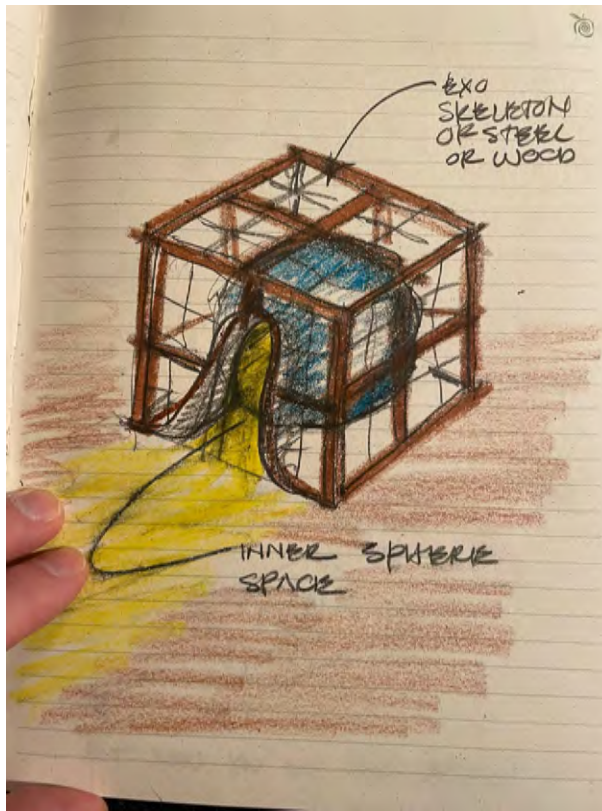 EXO
SKELETON
OR STEEL
OR WOOD
INNER SPHERE
SPACE